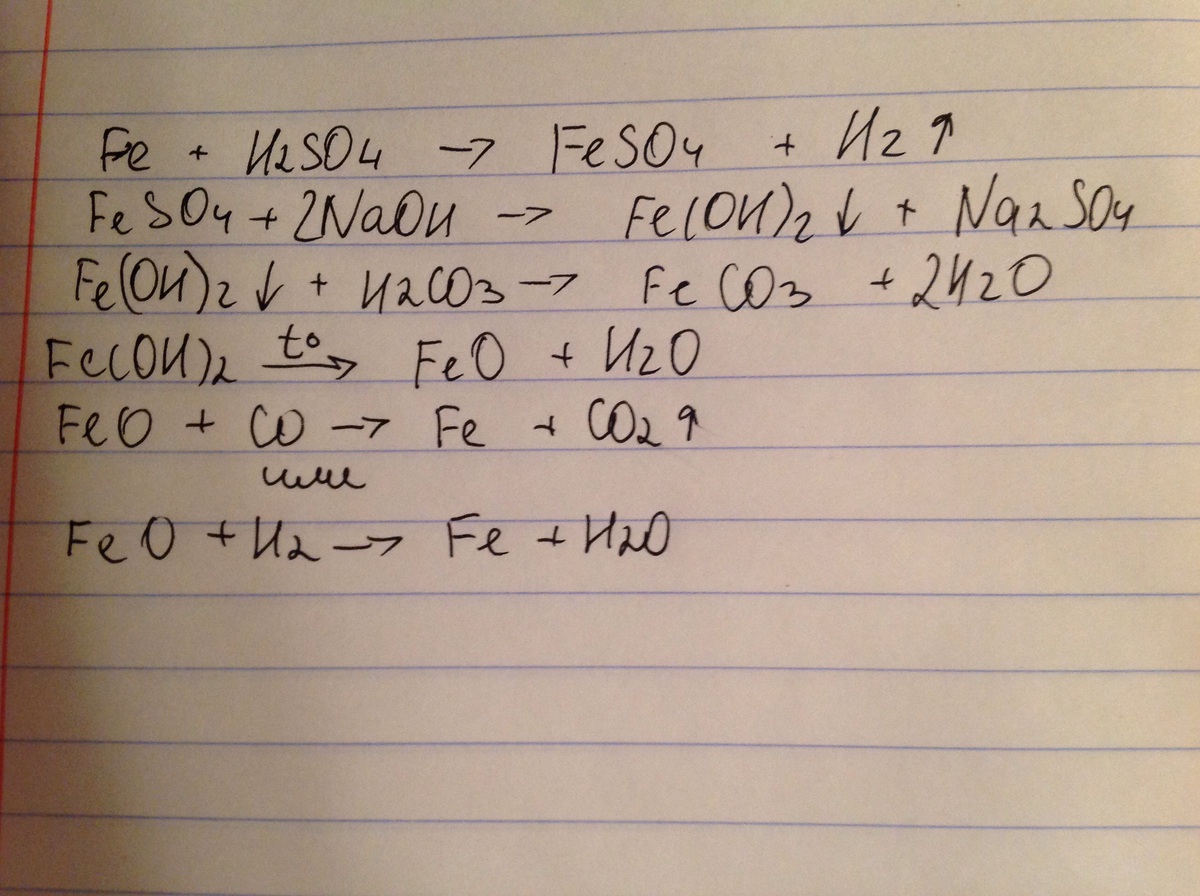 Fe + H2SO4 → FeSO4 + H2↑
FeSO4 + 2NaOH → Fe(OH)2↓ + Na2SO4
Fe(OH)2↓ + H2CO3 → FeCO3 + 2H2O
Fe(OH)2 t°→ FeO + H2O
FeO + CO → Fe + CO2↑
или
FeO + H2 → Fe + H2O